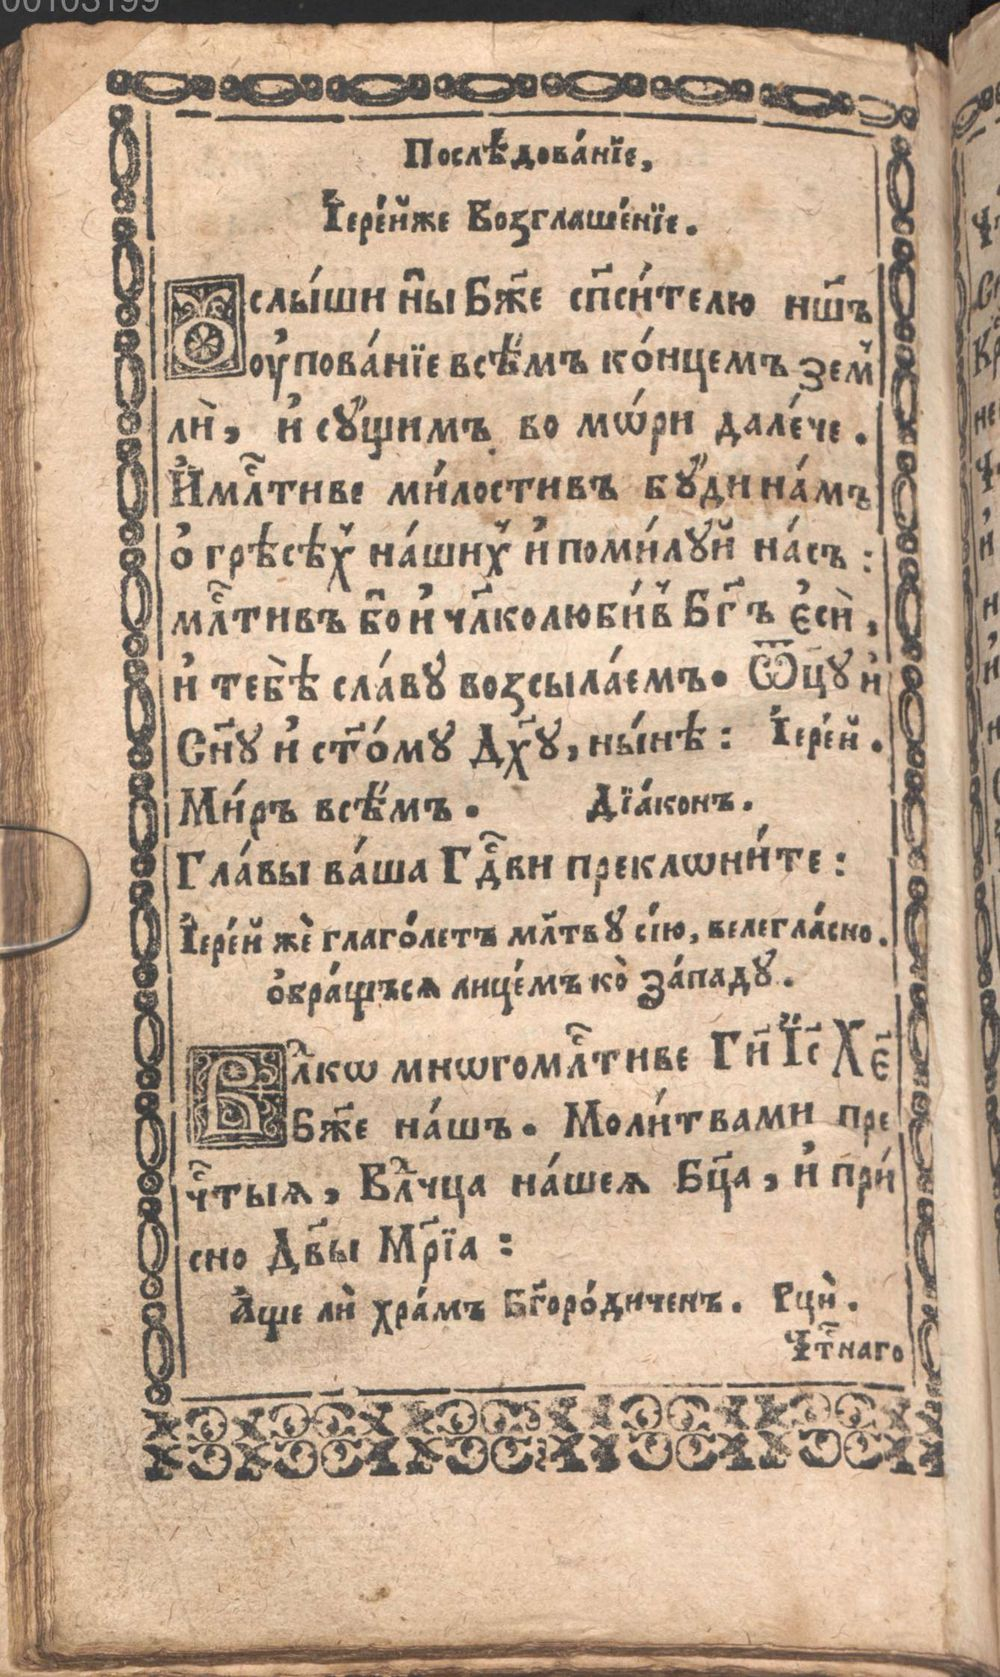 00103199
Послѣ́дова́нїе,
І҆ере́йже Возглаше́нїе.
Оу҆слы́ши ны̀ Бж҃е сп҃си́телю нш҃ъ
оу҆пова́нїе всѣ́мъ ко́нцемъ зем
лѝ, и҆ сꙋ́щимъ во мѡ́ри дале́че.
И҆мл҃тиве ми́лостивъ бꙋ́ди на́мъ
ѡ҆ грѣсѣ́х на́ших и҆ поми́лꙋй на́съ:
мл҃тивъ бо и҆ чл҃колюби́в Бг҃ъ є҆сѝ,
и҆ тебѣ̀ сла́вꙋ возсыла́емъ. Ѿц҃ꙋ и҆
Сн҃ꙋ и҆ ст҃о́мꙋ Дх҃ꙋ, ны́нѣ: І҆ере́й.
Ми́ръ всѣ́мъ. Дїа́конъ.
Гла́вы ва́ша Гд҃ви преклѡни́те:
І҆ере́й жѐ глаго́летъ мл҃твꙋ сі́ю, велегла́сно.
ѡ҆бра́щъсѧ лице́мъ ко̀ за́падꙋ.
Вл҃кѡ мнѡгомл҃тиве Гн҃ І҆с҃ Хє҃
Бж҃е на́шъ. Моли́твами пре
чт҃ыѧ, Вл҃чца на́шеѧ Бц҃а, и҆ при́
сно Дв҃ы Мр҃їа:
А҆ще лѝ хра́мъ Бг҃оро́диченъ. Рцѝ.
Чт҃наго